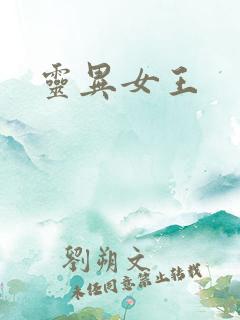 靈異女王
劉朔文
未经同意禁止转载